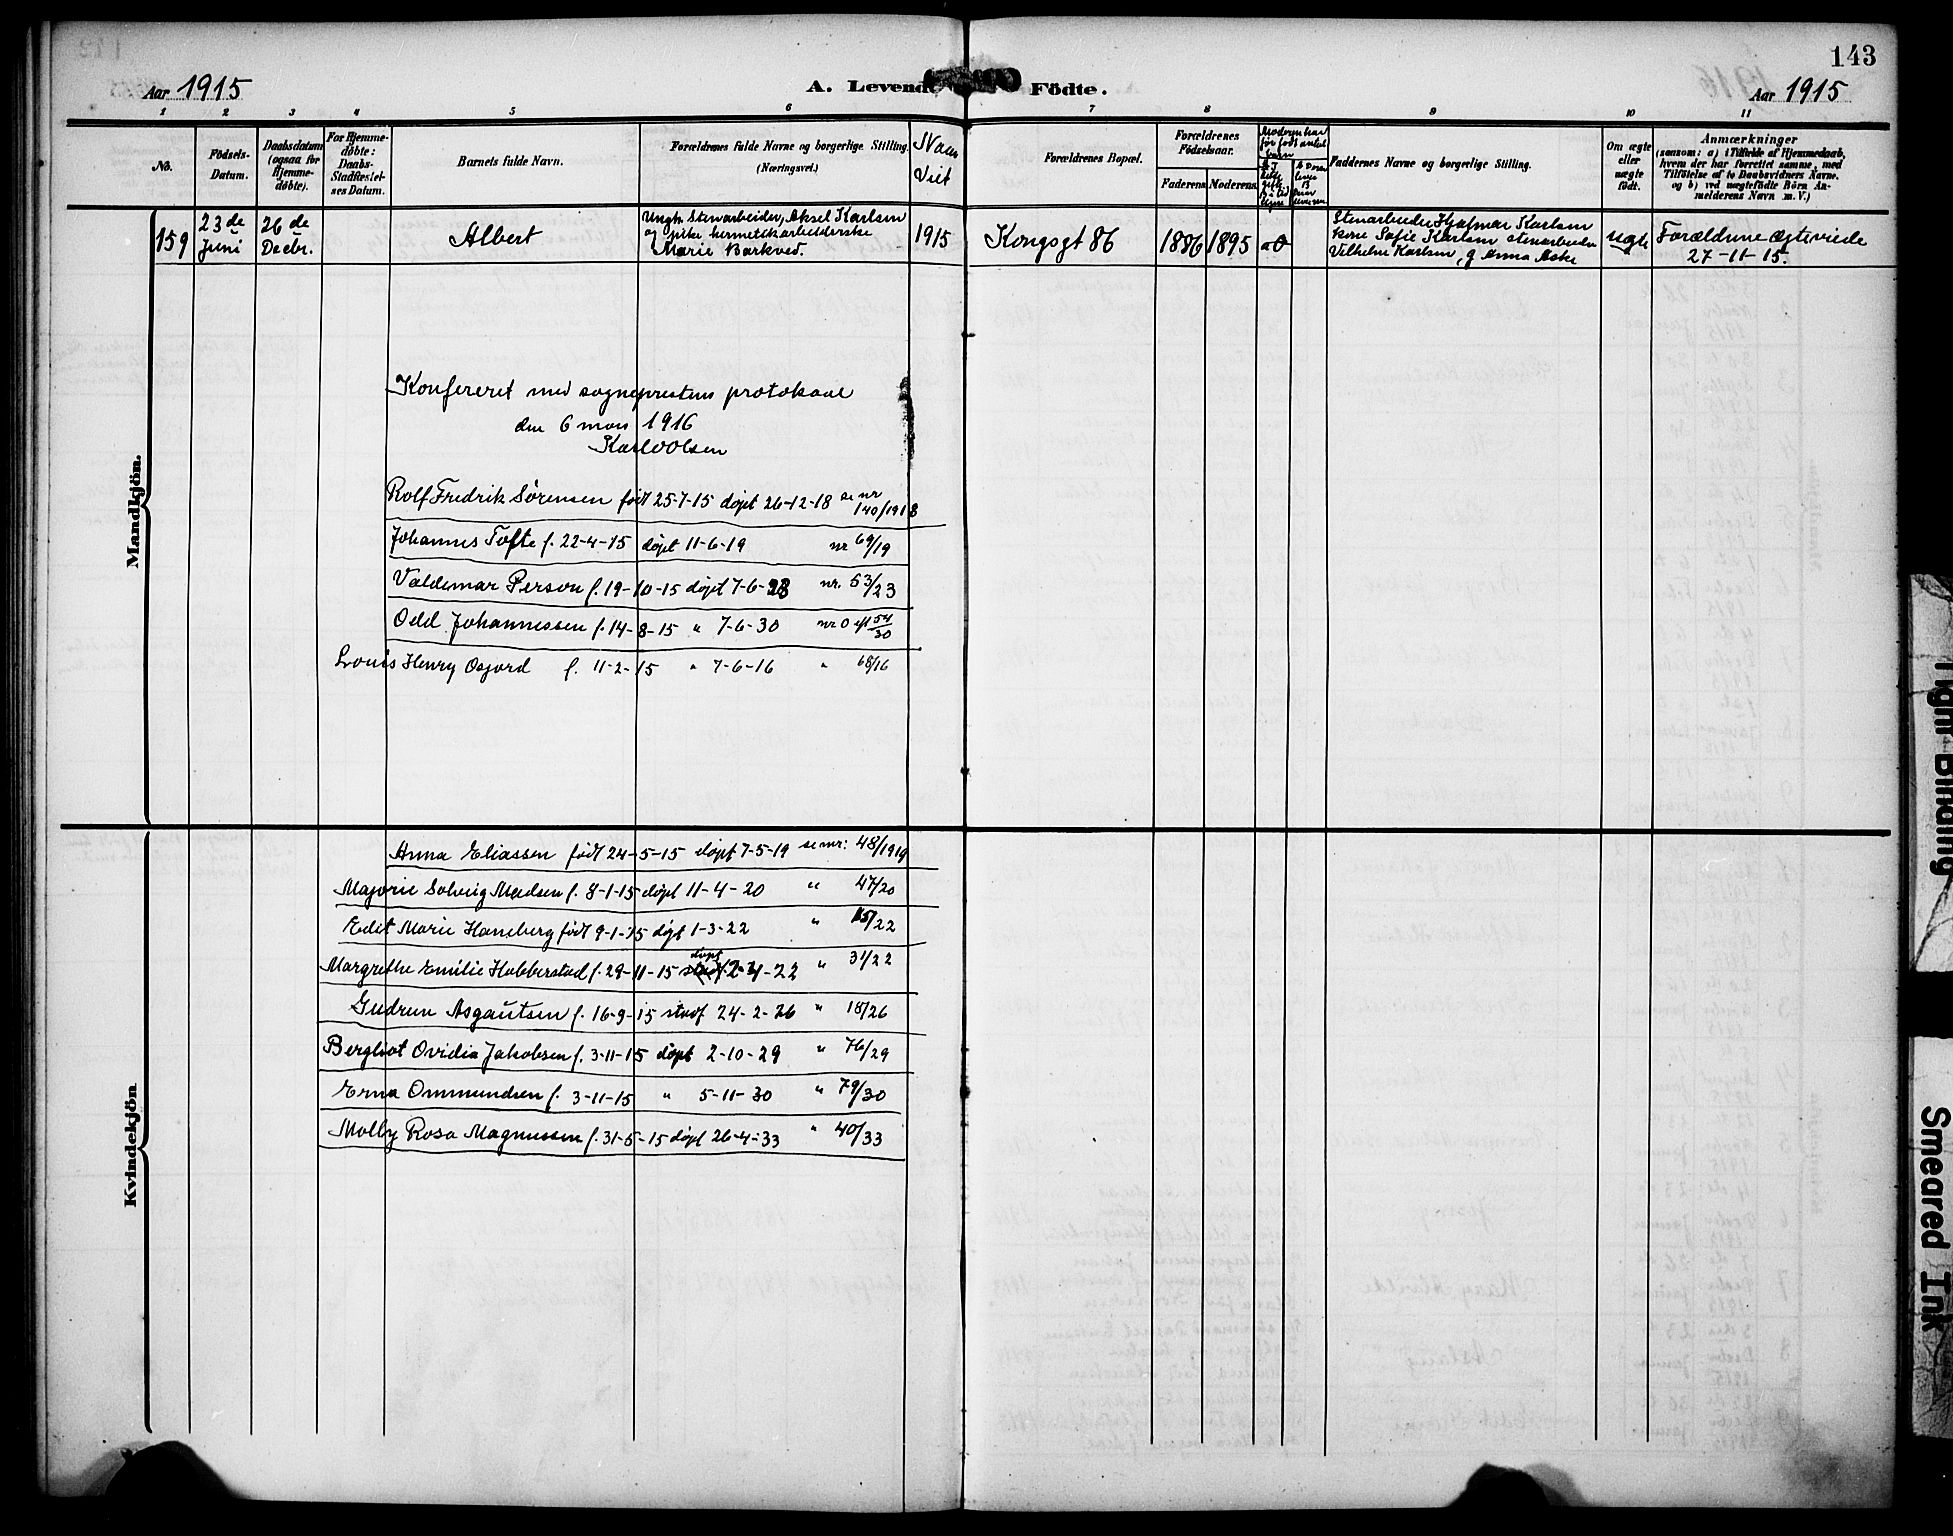 143
Aar 1915
A. Levende Födte.
Aar 1915
1 2 3 4 5 6 7 8 9 10 11
No.
Födsels-Datum.
Daabsdatum (ogsaa for Hjemme-döbte).
For Hjemme-döbte: Daabs-Stadfæstel-ses Datum.
Barnets fulde Navn.
Forældrenes fulde Navne og borgerlige Stilling.
(Næringsvei.)
Forældrenes Bopæl.
Forældrenes Födselsaar.
Faderens Moderens
Faddernes Navne og borgerlige Stilling.
Om ægte eller uægte födt.
Anmærkninger
(saasom: a) i Tilfælde af Hjemmedaab,
hvem der har forrettet samme, med
Tilföielse af to Daabsvidners Navne.
og b) ved uægtefödte Börn An-
melderens Navn m. V.)
Mandkjön.
159
23 de Juni
26 de Decbr.
Albert
Ungk. Stenarbeider, Aksel Karlsen
og pike hermetikarbeiderske
Marie Barkved.
1915
Kongsgt 86
1886 1895
Stenarbeider Hjalmar Karlsen
kone Sofie Karlsen stenarbeider
Vilhelm Karlsen, g Anna Aske
ugte
Forældrene ægteviede
27-11-15.
Konfereret med sogneprestens protokaal
den 6 mars 1916
Karl O Olsen
Rolf Fredrik Sørensen født 25-7-15 døpt 26-12-18 se nr 140/1918
Johannes Tofte f. 22-4-15 døpt 11-6-19 nr 69/19
Valdemar Person f. 19-10-15 døpt 7-6-23 nr. 53/23
Odd Johannessen f. 14-8-15 " 7-6-30 nr 54/30
Louis Henry Osjord f. 11-2-15 " 7-6-16 " 68/16
Kvindekjön
Anna Eliassen født 24-5-15 døpt 7-5-19 se nr: 48/1919
Majorie Solveig Madsen f. 8-1-15 døpt 11-4-20 " 47/20
Edit Marie Haneberg født 9-1-15 døpt 1-3-22 " 15/22
Margrethe Emilie Hobberstad f. 29-11-15 døpt 2-4-22 " 31/22
Gudrun Asgautsen f. 16-9-15 stadf 24-2-26 " 18/26
Bergliot Ovidia Jakobsen f. 3-11-15 døpt 2-10-29 " 76/29
Erna Ommundsen f. 3-11-15 " 5-11-30 " 79/30
Molly Rosa Magnussen f. 31-5-15 døpt 26-4-33 " 40/33
Tight Binding
Smeared Ink